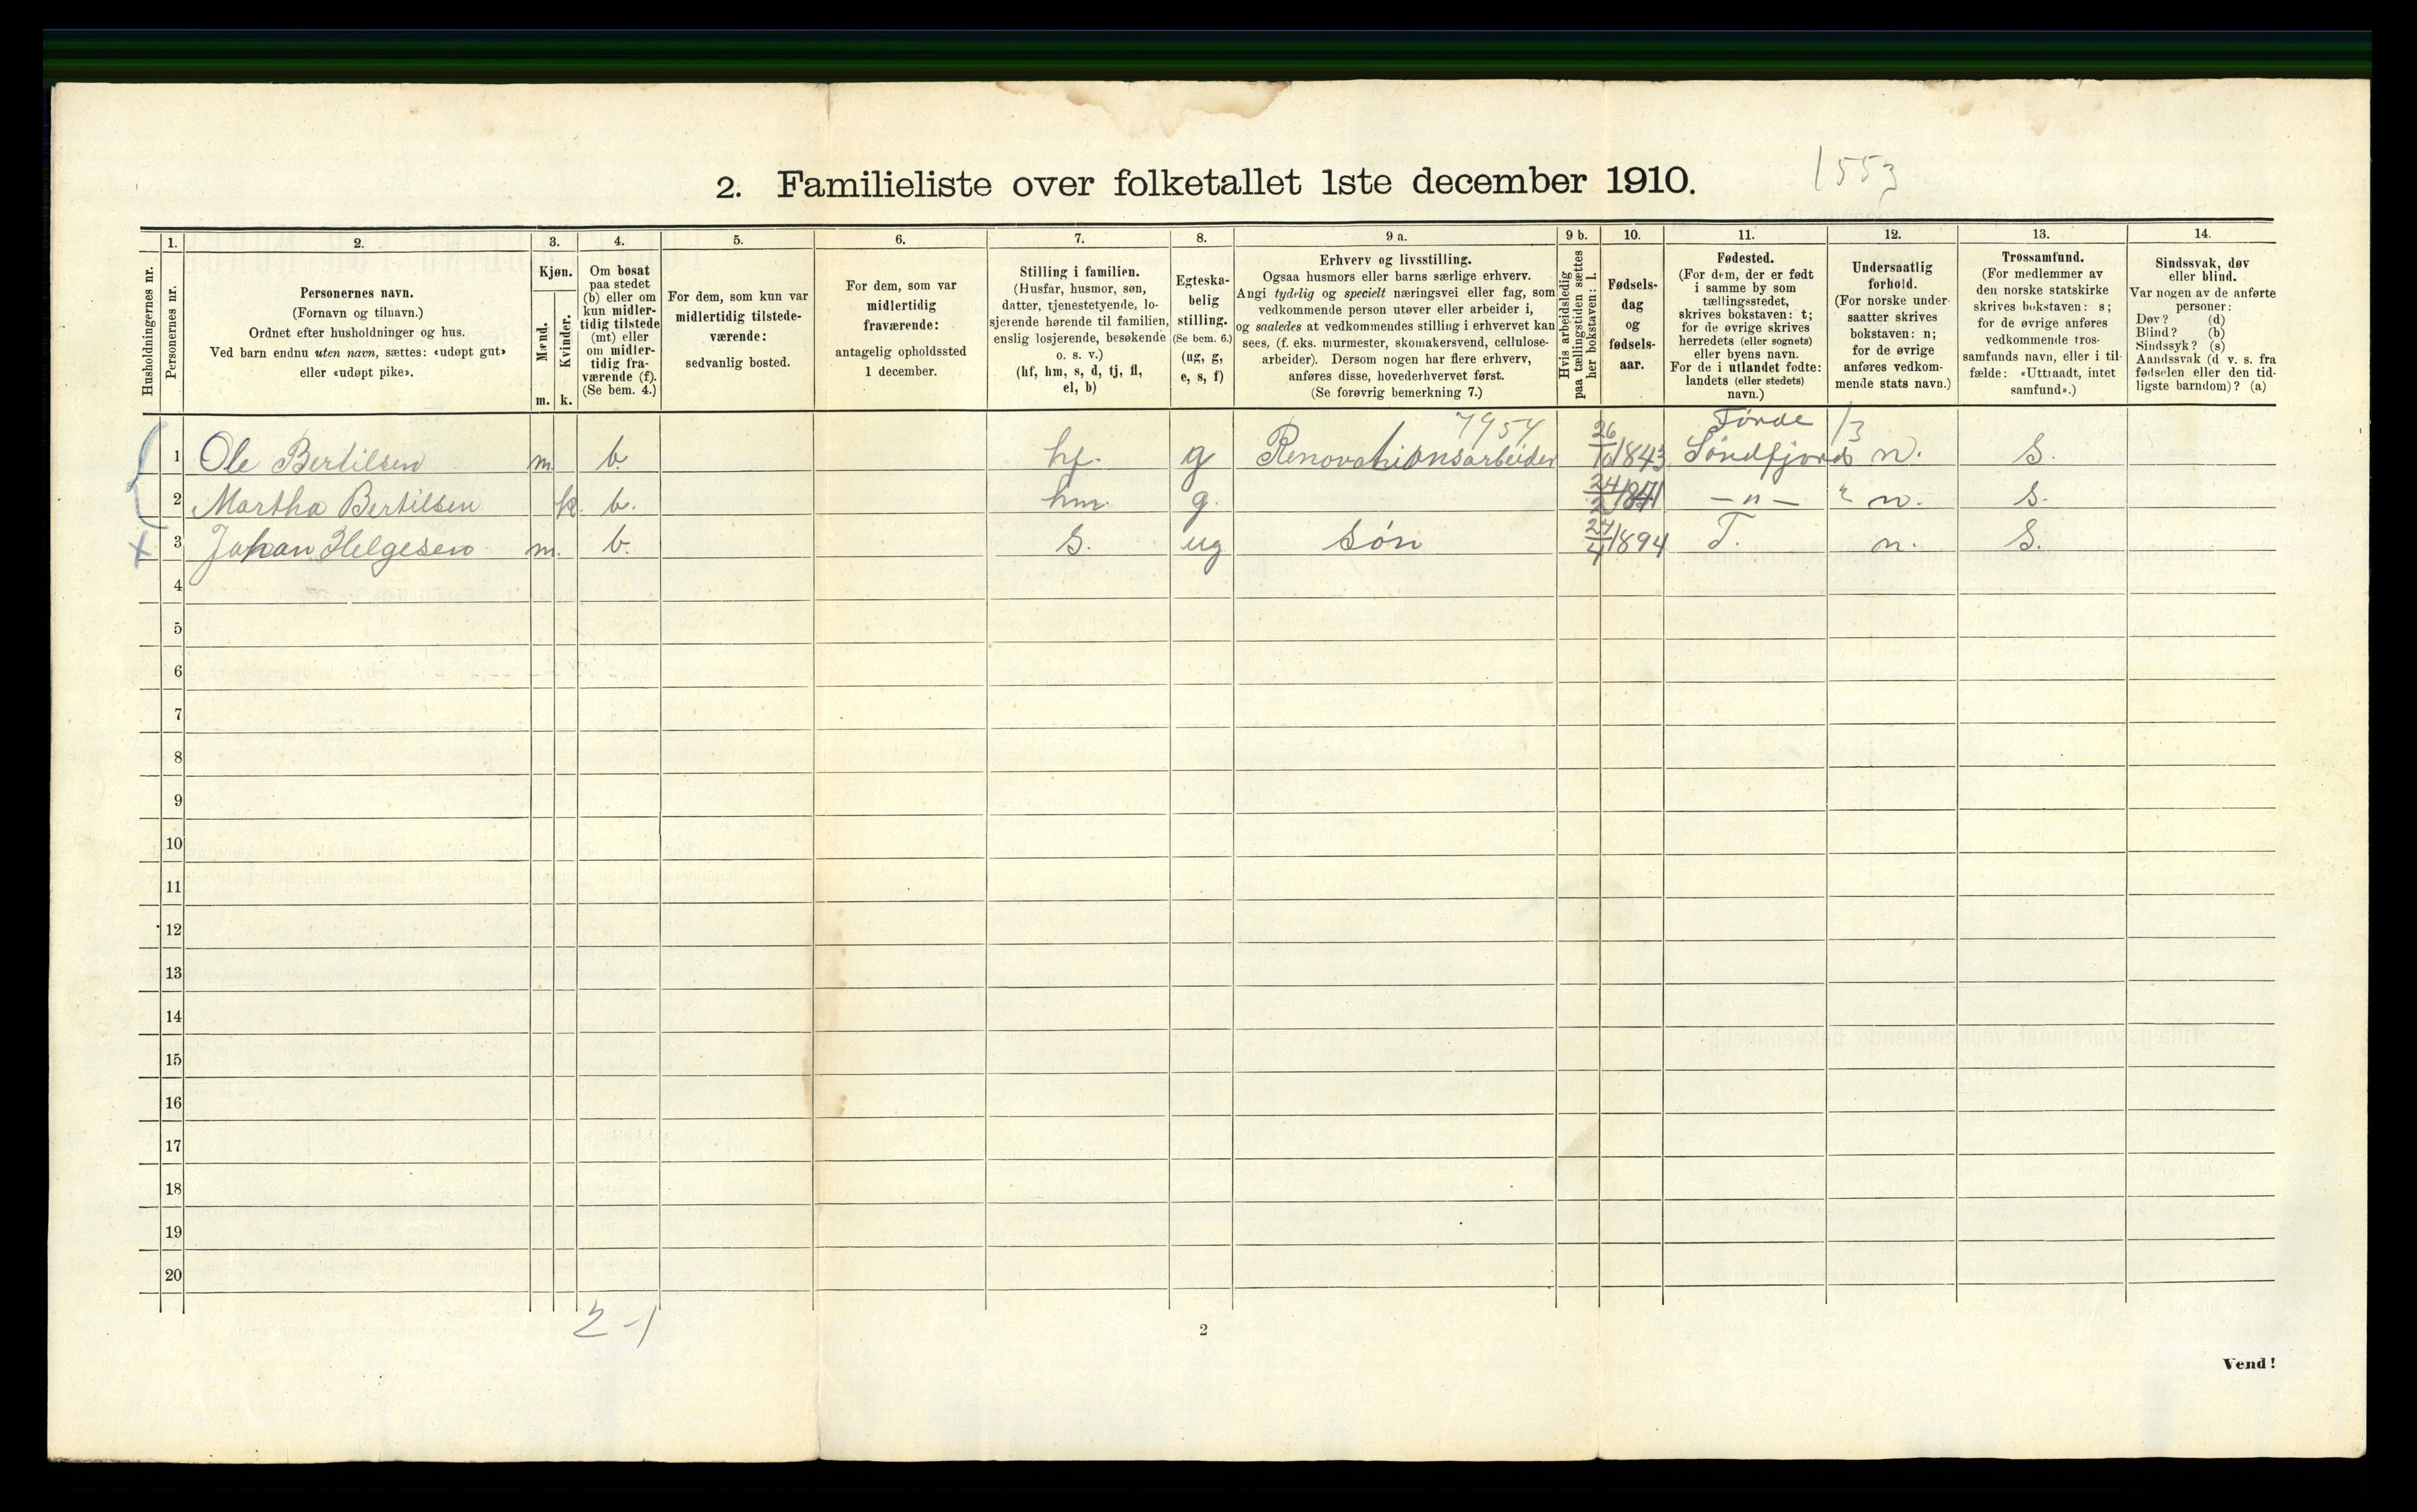 1553
2. Familieliste over folketallet 1ste december 1910.
Husholdningernes nr.
1.
Personernes nr.
2.
Personernes navn.
(Fornavn og tilnavn.)
Ordnet efter husholdninger og hus.
Ved barn endnu uten navn, sættes: «udøpt gut»
eller «udøpt pike».
3.
Kjøn.
Mænd.
Kvinder.
m. k.
4.
Om bosat
paa stedet
(b) eller om
kun midler-
tidig tilstede
(mt) eller
om midler-
tidig fra-
værende (f).
(Se bem. 4.)
5.
For dem, som kun var
midlertidig tilstede-
værende:
sedvanlig bosted.
6.
For dem, som var
midlertidig
fraværende:
antagelig opholdssted
1 december.
7.
Stilling i familien.
(Husfar, husmor, søn,
datter, tjenestetyende, lo-
sjerende hørende til familien,
enslig losjerende, besøkende
o. s. v.)
(hf, hm, s, d, tj, fl,
el, b)
8.
Egteska-
belig
stilling.
(Se bem. 6.)
(ug, g,
e, s, f)
9 a.
Erhverv og livsstilling.
Ogsaa husmors eller barns særlige erhverv.
Angi tydelig og specielt næringsvei eller fag, som
vedkommende person utøver eller arbeider i,
og saaledes at vedkommendes stilling i erhvervet kan
sees, (f. eks. murmester, skomakersvend, cellulose-
arbeider). Dersom nogen har flere erhverv,
anføres disse, hovederhvervet først.
(Se forøvrig bemerkning 7.)
9 b.
Hvis arbeidsledig
paa tællingstiden sættes
her bokstaven: l.
10.
Fødsels-
dag
og
fødsels-
aar.
11.
Fødested.
(For dem, der er født
i samme by som
tællingsstedet,
skrives bokstaven: t;
for de øvrige skrives
herredets (eller sognets)
eller byens navn.
For de i utlandet fødte:
landets (eller stedets)
navn.)
12.
Undersaatlig
forhold.
(For norske under-
saatter skrives
bokstaven: n;
for de øvrige
anføres vedkom-
mende stats navn.)
13.
Trossamfund.
(For medlemmer av
den norske statskirke
skrives bokstaven: s;
for de øvrige anføres
vedkommende tros-
samfunds navn, eller i til-
fælde: «Uttraadt, intet
samfund».)
14.
Sindssvak, døv
eller blind.
Var nogen av de anførte
personer:
Døv? (d)
Blind? (b)
Sindssyk? (s)
Aandssvak (d. v. s. fra
fødselen eller den tid-
ligste barndom)? (a)
7954 Førde 13
1 Ole Bertilsen m. b. hf. g Renovationsarbeider 26/10 1843 Søndfjord n. S.
2 Martha Bertilsen k. b. hm. g. 24/2 — " — " n. S.
3 Johan Helgesen m. b. S. ug Søn 27/4 1894 T. n. S.
4
5
6
7
8
9
10
11
12
13
14
15
16
17
18
19
20
2-1
2
Vend!